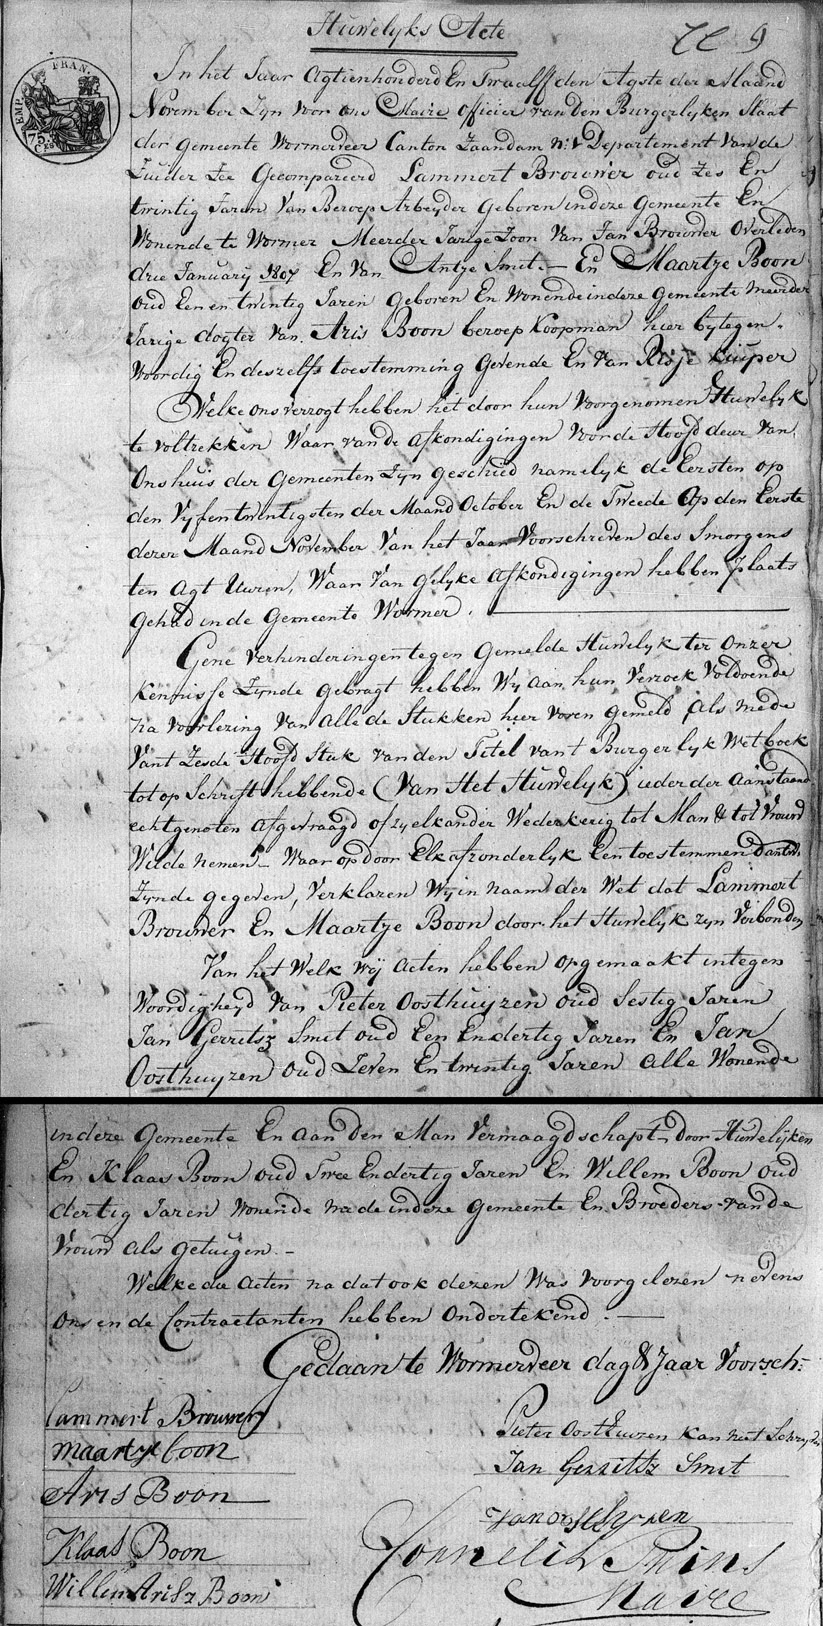 Huwelyks Acte
9
EMP. FRAN.
75.
CES
In het Jaar Agtienhonderd En Twaalff den Agste der Maand
November Zyn voor ons Maire officier van den Burgerlyken Staat
der Gemeente Wormerveer Canton Zaandam Departement van de
Zuider Zee Gecompareerd Lammert Brouwer oud Zes En
twintig Jaren Van Beroep Arbeyder Geboren in deze Gemeente En
Wonende te Wormer Meerder Jarige Zoon Van Jan Brouwer Overleden
drie January 1807 En Van Antje Smit. — En Maartje Boon
oud Een en twintig Jaren geboren En Wonende in deze Gemeente meerder
Jarige dogter Van Aris Boon beroep Koopman hier bytegen-
woordig En deszelfs toestemming Gevende En Van Kuiper
Welke ons verzogt hebben het door hun Voorgenomen Huwelyk
te voltrekken Waar van de afkondigingen Voor de Hoofd deur Van
Ons huis der Gemeenten Zyn geschied namelyk de Eersten op
den Vyfentwintigsten der Maand October En de Tweede Op den Eerste
dezer Maand November Van het Jaar Voorschreven des Smorgens
ten Agt Uuren, Waar Van gelyke Afkondigingen hebben plaats
gehad in de Gemeente Wormer. —
Gene verhinderingen tegen Gemelde Huwelyk ter onzer
Kennisse Zynde gebragt hebben Wy aan hun Verzoek Voldoende
na voorlezing Van alle de Stukken hier voren gemeld Als mede
Vant Zesde Hoofd Stuk van den Titel van't Burgerlyk Wetboek
tot op Schrift hebbende (Van Het Huwelyk) ieder der Aanstaand
echtgenoten afgevraagd of zy elkander Wederkerig tot Man & tot Vrouw
Wilde nemen. — Waar op door Elk afzonderlyk Een toestemmend antw.
Zynde gegeven, Verklaren Wy in naam der Wet dat Lammert
Brouwer En Maartje Boon door het Huwelyk zyn Verbonden
Van het Welk wij Acten hebben opgemaakt integen
Woordigheyd Van Pieter Oosthuyzen oud Sestig Jaren
Jan Gerritsz Smit oud Een En dertig Jaren En Jan
Oosthuyzen oud Zeven En twintig Jaren alle Wonende
in deze Gemeente En aan den Man Vermaagdschapt door Huwelyken
En Klaas Boon oud Twee En dertig Jaren En Willem Boon oud
dertig Jaren Wonende mede in deze Gemeente En Broeders van de
Vrouw als getuigen. —
Welke die Acten na dat ook dezen Was voorgelezen nevens
Ons en de Contractanten hebben Ondertekend. —
Gedaan te Wormerveer dag & Jaar Voorsch:
Lammert Brouwer
maartje boon
Aris Boon
Klaas Boon
Willem Arisz Boon
Pieter Oosthuizen Kan niet Schryven
Jan Gerritsz Smit
Cornelis
Maire